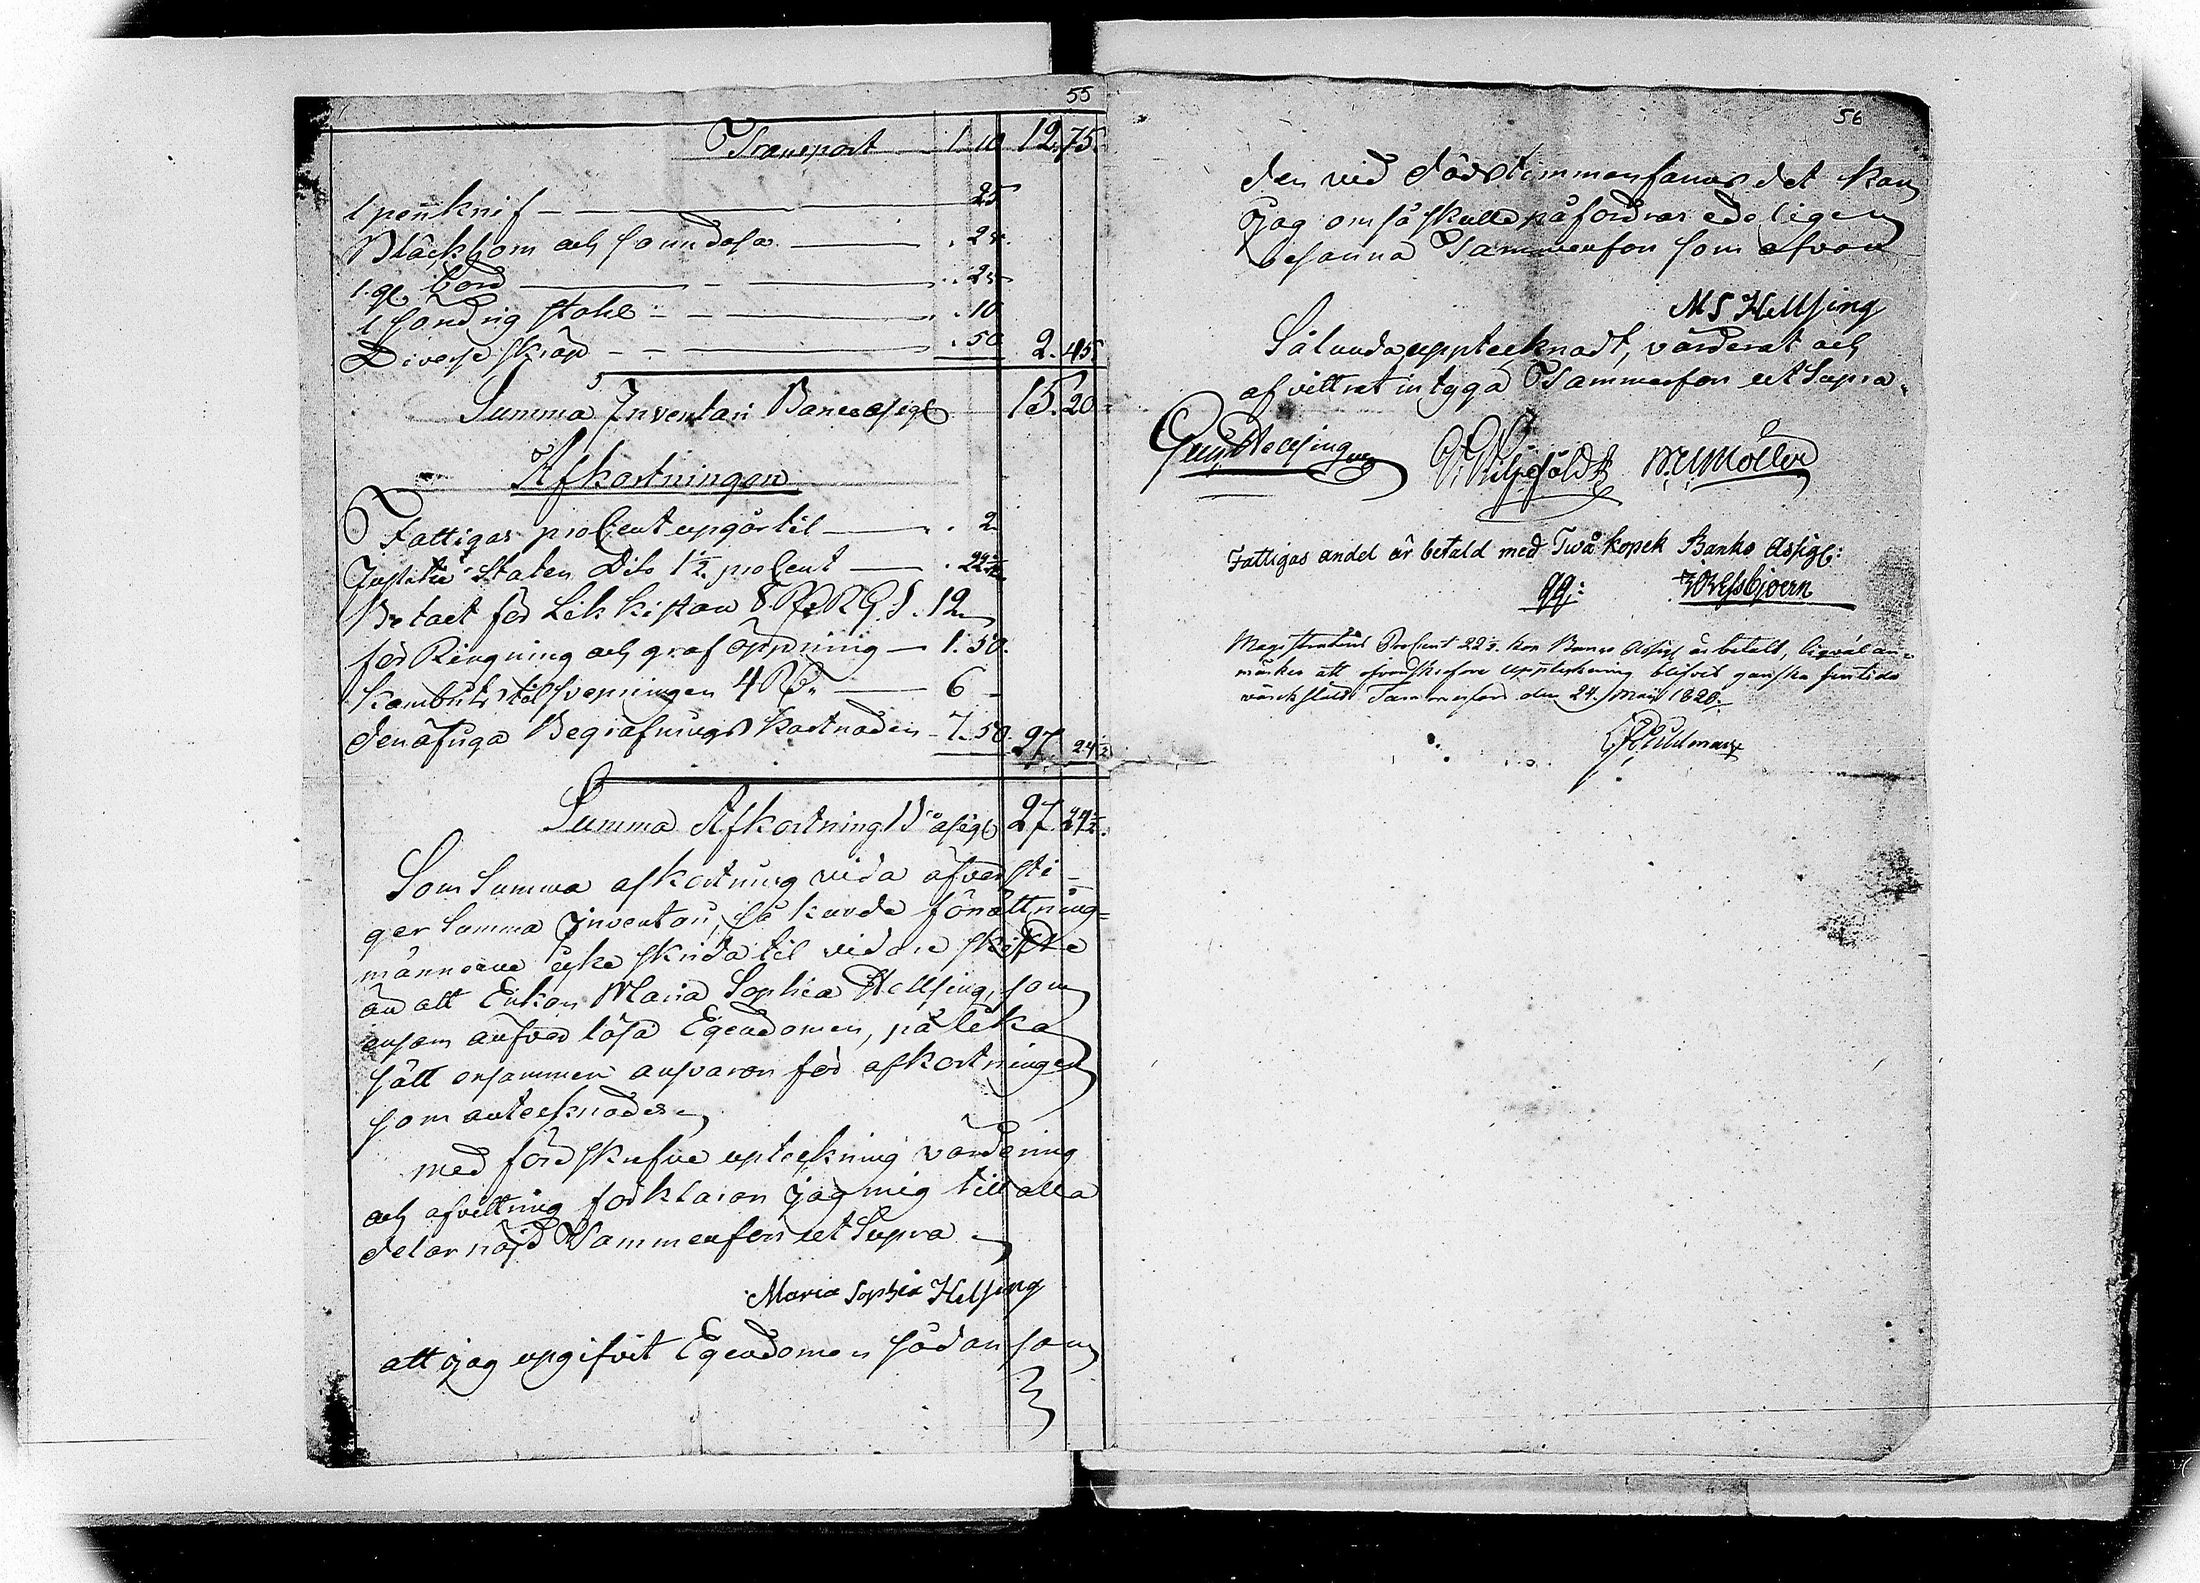 55
Transport — 1. 10 12. 75.
1 pennknif — 25
Bläckhorn och sanndosa — . 25.
1. gl. bord — . 25
1 sondrig stohl — . 10
Diverse skräp — . 50 2. 45
Summa Inventari Banco assigl 15. 20
Afkortningen
Fattigas procent upgår til — . 2
Justitiæ Staten Dito 1½ procent — . 22½
Betalt för Lik kistan 8 Rb R G S. 12
för Ringning och graf öppning — 1. 50.
til svepningen 4 Rb — 6 –
Begrafnings kostnaden — 7. 50. 27. 24½
Summa Afkortning B:o assigl 27. 24½.
Som Summa afkortning vida öfversti-
ger Summa Inventari, så kunde förrättnings=
männerne icke skrida til vidare skifte
än att Enkan Maria Sophia Hellsing, som
ansvar Egendomen, på lika
sätt ansvaren för afkortningen
som antecknades
med föreskrefne upteckning värdering
och afvittring förklarar jag mig till alla
delar nöjd Tammerfors ut Supra
Maria Sophia Helsing
att jag upgifvit Egendomen sådan som
56
den vid dödstimman fanns det kan
jag om så skulle påfordras edeligen
besanna Tammerfors som ofvan
M S Hellsing
Sålunda upptecknadt, värderat och
afvittrat intyga Tammerfors ut Supra.
Hellsing Liljeföldt Möller
Fattigas andel är betald med Twå kopek Banko Assigl:
qq:
Magistratens Procent 22½ kop Banco Assigl är betalt, likväl an=
märkes att ofvanskrefne Uppteckning blifvit ganska sentida
värckstäldt Tammerfors den 24. Maij 1820.